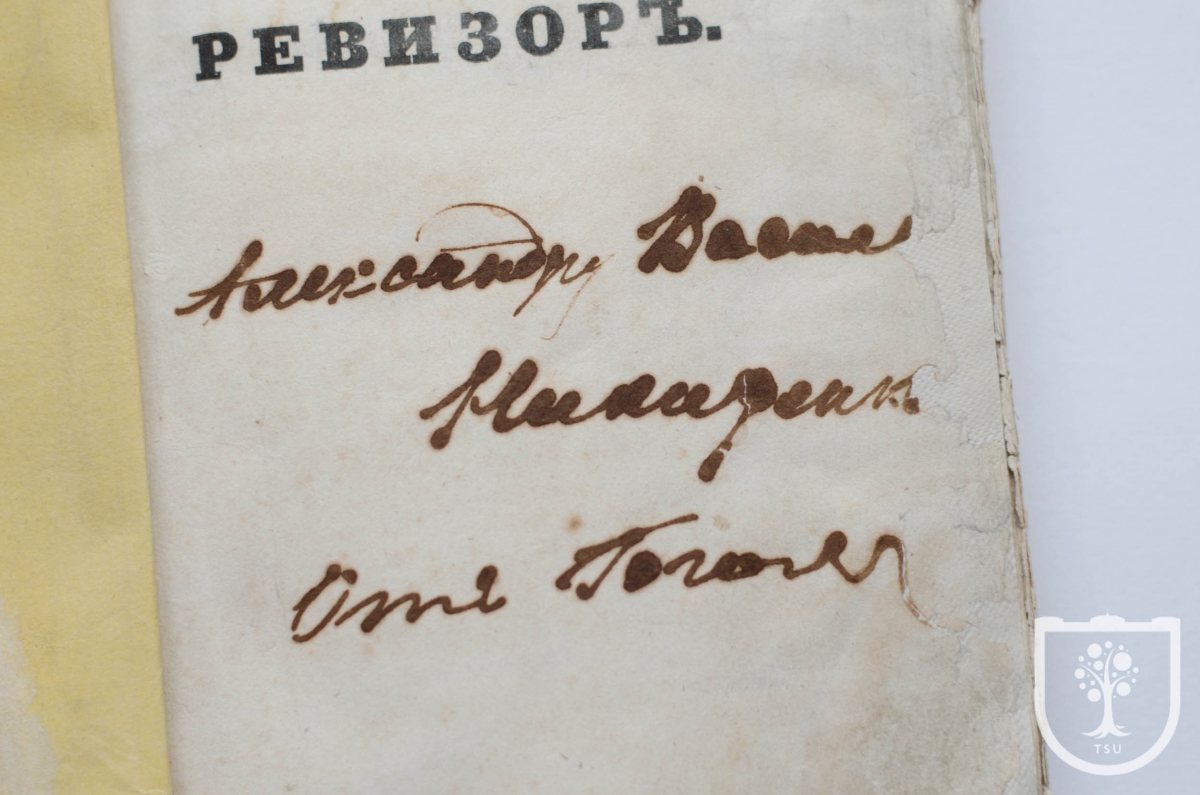 РЕВИЗОРЪ.
Александру Васил
Никитенк
Отъ Гоголя
TSU